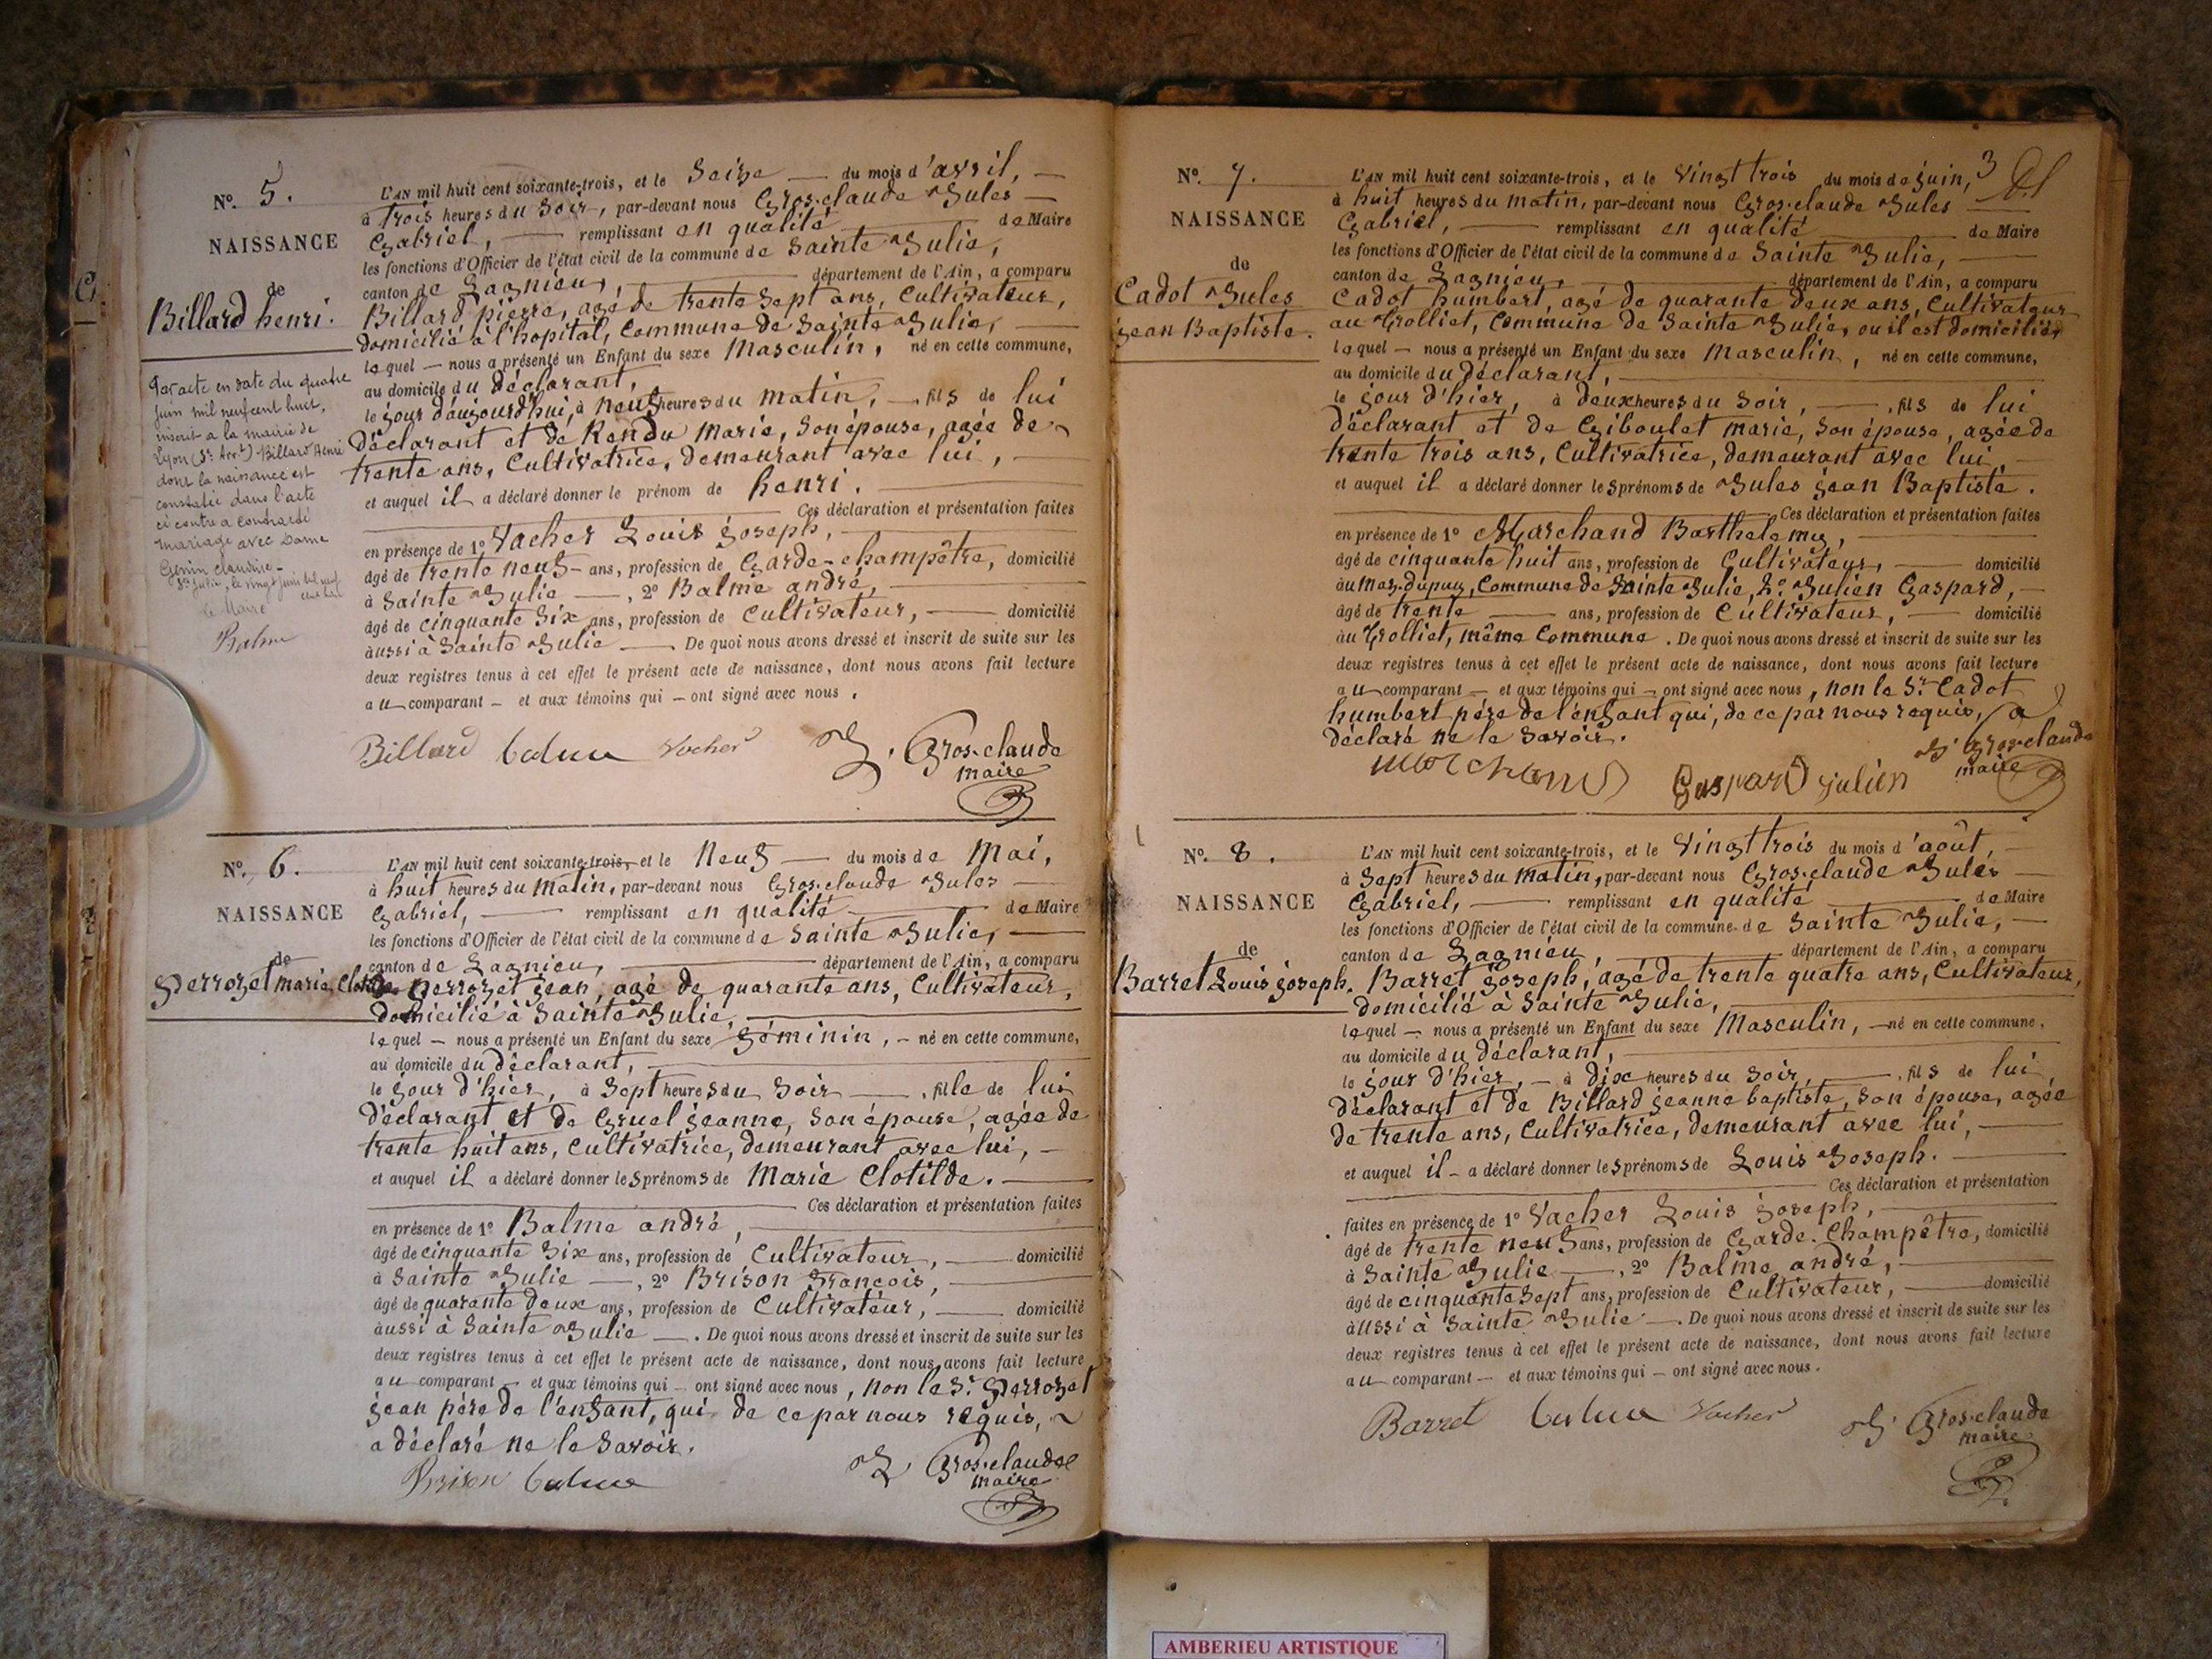 N.º 5.
NAISSANCE
de
Billard henri.
Par acte en date du quatre
juin mil neuf cent huit,
inscrit a la mairie de
Lyon (5e Arrt) Billard Henri
dont la naissance est
constatée dans l'acte
ci contre a contracté
mariage avec Dame
Genin Claudine
Ste Julie, le vingt juin mil neuf
cent huit
Le Maire
Balme
L'AN mil huit cent soixante-trois, et le Seize — du mois d'avril, —
à trois heures du Soir, par-devant nous Gros-claude Jules —
Gabriel, — remplissant en qualité — de Maire
les fonctions d'Officier de l'état civil de la commune de Sainte Julie,
canton de Lagnieu, — département de l'Ain, a comparu
Billard pierre, agé de trente Sept ans, Cultivateur,
domicilié à l'hopital, Commune de Sainte Julie, —
lequel — nous a présenté un Enfant du sexe Masculin, né en cette commune,
au domicile du déclarant,
le jour d'aujourd'hui, à neuf heures du matin, — fils de lui
déclarant et de Rendu Marie, Son épouse, agée de
trente ans, Cultivatrice, demeurant avec lui, —
et auquel il a déclaré donner le prénom de henri. —
Ces déclaration et présentation faites
en présence de 1º Vacher Louis Joseph, —
âgé de trente neuf — ans, profession de Garde-champêtre, domicilié
à Sainte Julie —, 2º Balme andré, —
âgé de cinquante Six ans, profession de Cultivateur, — domicilié
aussi à Sainte Julie —. De quoi nous avons dressé et inscrit de suite sur les
deux registres tenus à cet effet le présent acte de naissance, dont nous avons fait lecture
au comparant — et aux témoins qui — ont signé avec nous.
Billard balme Vacher J. Gros-claude
maire
N.º 6.
NAISSANCE
de
Perrozet marie Clotilde
L'AN mil huit cent soixante-trois, et le Neuf — du mois de Mai,
à huit heures du Matin, par-devant nous Gros-claude Jules —
Gabriel, — remplissant en qualité — de Maire
les fonctions d'Officier de l'état civil de la commune de Sainte Julie, —
canton de Lagnieu, — département de l'Ain, a comparu
Perrozet jean, agé de quarante ans, Cultivateur,
domicilié à Sainte Julie, —
lequel — nous a présenté un Enfant du sexe féminin, — né en cette commune,
au domicile du déclarant, —
le jour d'hier, à Sept heures du Soir —, fille de lui
déclarant et de Gruel jeanne, Son épouse, agée de
trente huit ans, Cultivatrice, demeurant avec lui, —
et auquel il a déclaré donner les prénoms de Marie Clotilde. —
Ces déclaration et présentation faites
en présence de 1º Balme andré, —
âgé de cinquante Six ans, profession de Cultivateur, — domicilié
à Sainte Julie —, 2º Brison François, —
âgé de quarante deux ans, profession de Cultivateur, — domicilié
aussi à Sainte Julie —. De quoi nous avons dressé et inscrit de suite sur les
deux registres tenus à cet effet le présent acte de naissance, dont nous avons fait lecture
au comparant — et aux témoins qui — ont signé avec nous, non le Sr. Perrozet
jean pére de l'enfant, qui de ce par nous requis,
a déclaré ne le Savoir.
Brison balme J. Gros-claude
maire
3
N.º 7.
NAISSANCE
de
Cadot Jules
jean Baptiste.
L'AN mil huit cent soixante-trois, et le Vingt trois du mois de juin,
à huit heures du matin, par-devant nous Gros-claude Jules —
Gabriel, — remplissant en qualité — de Maire
les fonctions d'Officier de l'état civil de la commune de Sainte Julie, —
canton de Lagnieu, — département de l'Ain, a comparu
Cadot humbert, agé de quarante deux ans, Cultivateur
au Trolliet, Commune de Sainte Julie, ou il est domicilié,
lequel — nous a présenté un Enfant du sexe Masculin, né en cette commune,
au domicile du déclarant, —
le jour d'hier, à deux heures du Soir, —, fils de lui
déclarant et de Giboulet marie, Son épouse, agée de
trente trois ans, Cultivatrice, demeurant avec lui, —
et auquel il a déclaré donner les prénoms de Jules jean Baptiste.
Ces déclaration et présentation faites
en présence de 1º Marchand Barthelemy, —
âgé de cinquante huit ans, profession de Cultivateur, — domicilié
au Mas-dupuy, Commune de Sainte Julie, 2º Julien Gaspard, —
âgé de trente — ans, profession de Cultivateur, — domicilié
au Trolliet, même Commune. De quoi nous avons dressé et inscrit de suite sur les
deux registres tenus à cet effet le présent acte de naissance, dont nous avons fait lecture
au comparant — et aux témoins qui — ont signé avec nous, non le Sr. Cadot
humbert pére de l'enfant qui, de ce par nous requis, a
déclaré ne le Savoir.
marchand Gaspard julien J. Gros-claude
maire
N.º 8.
NAISSANCE
de
Barret Louis joseph.
L'AN mil huit cent soixante-trois, et le Vingt trois du mois d'août, —
à Sept heures du Matin, par-devant nous Gros-claude Jules —
Gabriel, — remplissant en qualité — de Maire
les fonctions d'Officier de l'état civil de la commune de Sainte Julie, —
canton de Lagnieu, — département de l'Ain, a comparu
Barret joseph, agé de trente quatre ans, Cultivateur,
domicilié à Sainte Julie, —
lequel — nous a présenté un Enfant du sexe Masculin, — né en cette commune,
au domicile du déclarant, —
le jour d'hier, — à dix heures du Soir, —, fils de lui
déclarant et de Billard jeanne baptiste, Son épouse, agée
de trente ans, Cultivatrice, demeurant avec lui, —
et auquel il — a déclaré donner les prénoms de Louis Joseph. —
Ces déclaration et présentation
faites en présence de 1º Vacher Louis joseph, —
âgé de trente neuf ans, profession de Garde-Champêtre, domicilié
à Sainte Julie —, 2º Balme andré, —
âgé de cinquante Sept ans, profession de Cultivateur, — domicilié
aussi à Sainte Julie —. De quoi nous avons dressé et inscrit de suite sur les
deux registres tenus à cet effet le présent acte de naissance, dont nous avons fait lecture
au comparant — et aux témoins qui — ont signé avec nous.
Barret balme Vacher J. Gros-claude
maire
AMBERIEU ARTISTIQUE